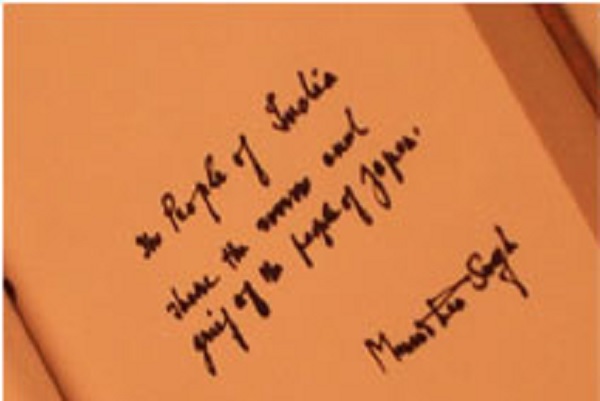 The People of India
share the sorrow and
grief of the people of Japan.
Manmohan Singh